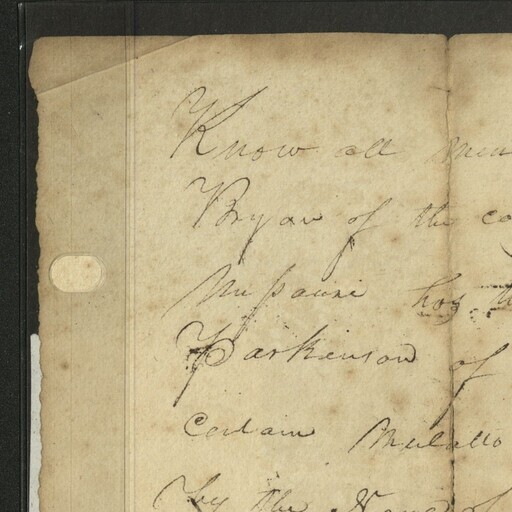 Know all men
Bryan of the co
Missouri hos
Parkinson of
Certain Mulatto
by the Name of